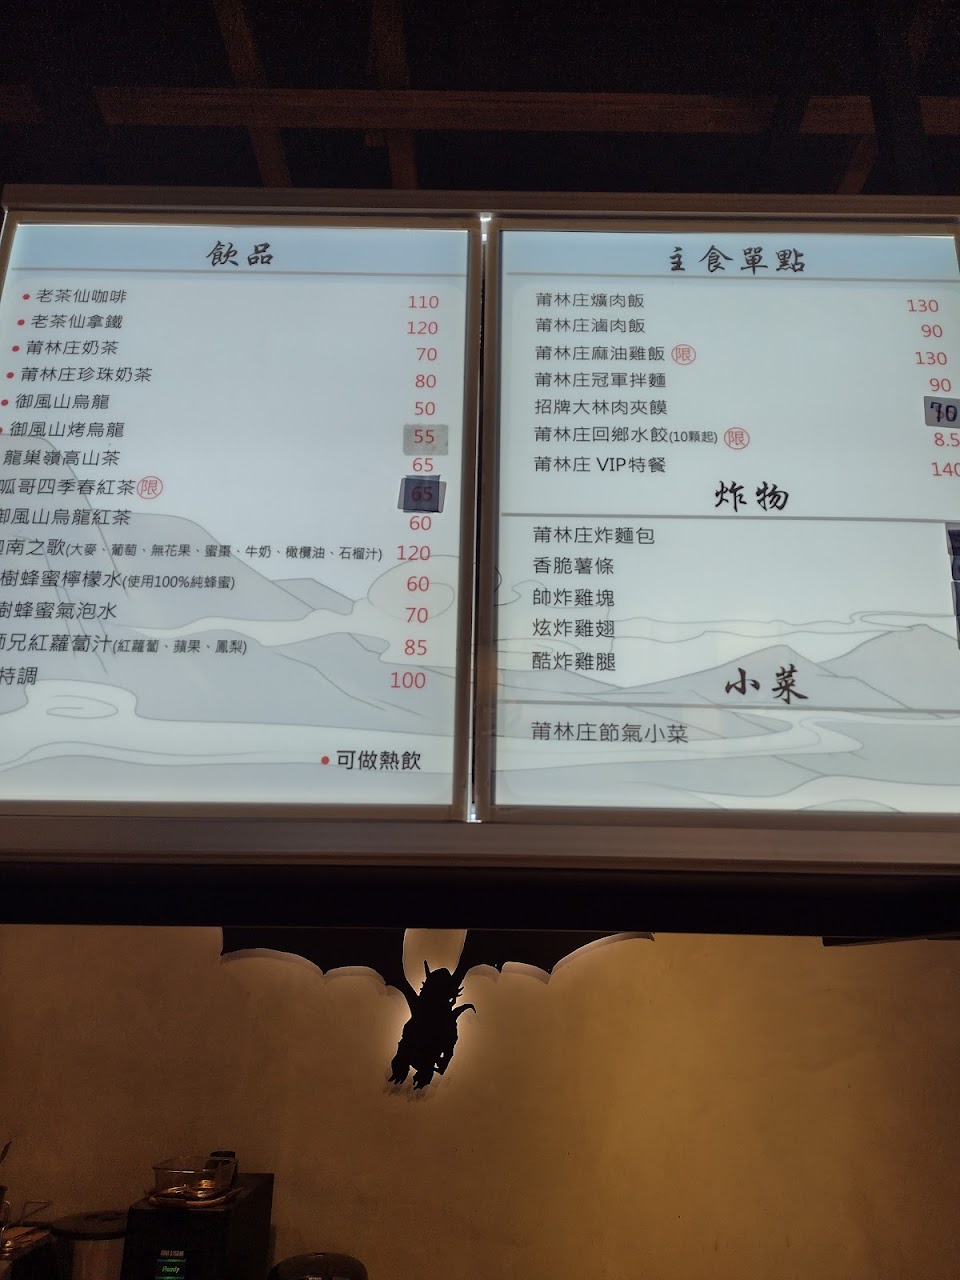 飲品
老茶仙咖啡 110
老茶仙拿鐵 120
莆林庄奶茶 70
莆林庄珍珠奶茶 80
御風山烏龍 50
御風山烤烏龍 55
龍巢嶺高山茶 65
呱哥四季春紅茶 限 65
御風山烏龍紅茶 60
南之歌(大麥、葡萄、無花果、蜜棗、牛奶、橄欖油、石榴汁) 120
樹蜂蜜檸檬水(使用100%純蜂蜜) 60
樹蜂蜜氣泡水 70
兄紅蘿蔔汁(紅蘿蔔、蘋果、鳳梨) 85
特調 100
可做熱飲
主食單點
莆林庄爌肉飯 130
莆林庄滷肉飯 90
莆林庄麻油雞飯 限 130
莆林庄冠軍拌麵 90
招牌大林肉夾饃 70
莆林庄回鄉水餃(10顆起) 限 8.5
莆林庄 VIP特餐 140
炸物
莆林庄炸麵包
香脆薯條
帥炸雞塊
炫炸雞翅
酷炸雞腿
小菜
莆林庄節氣小菜
Ready